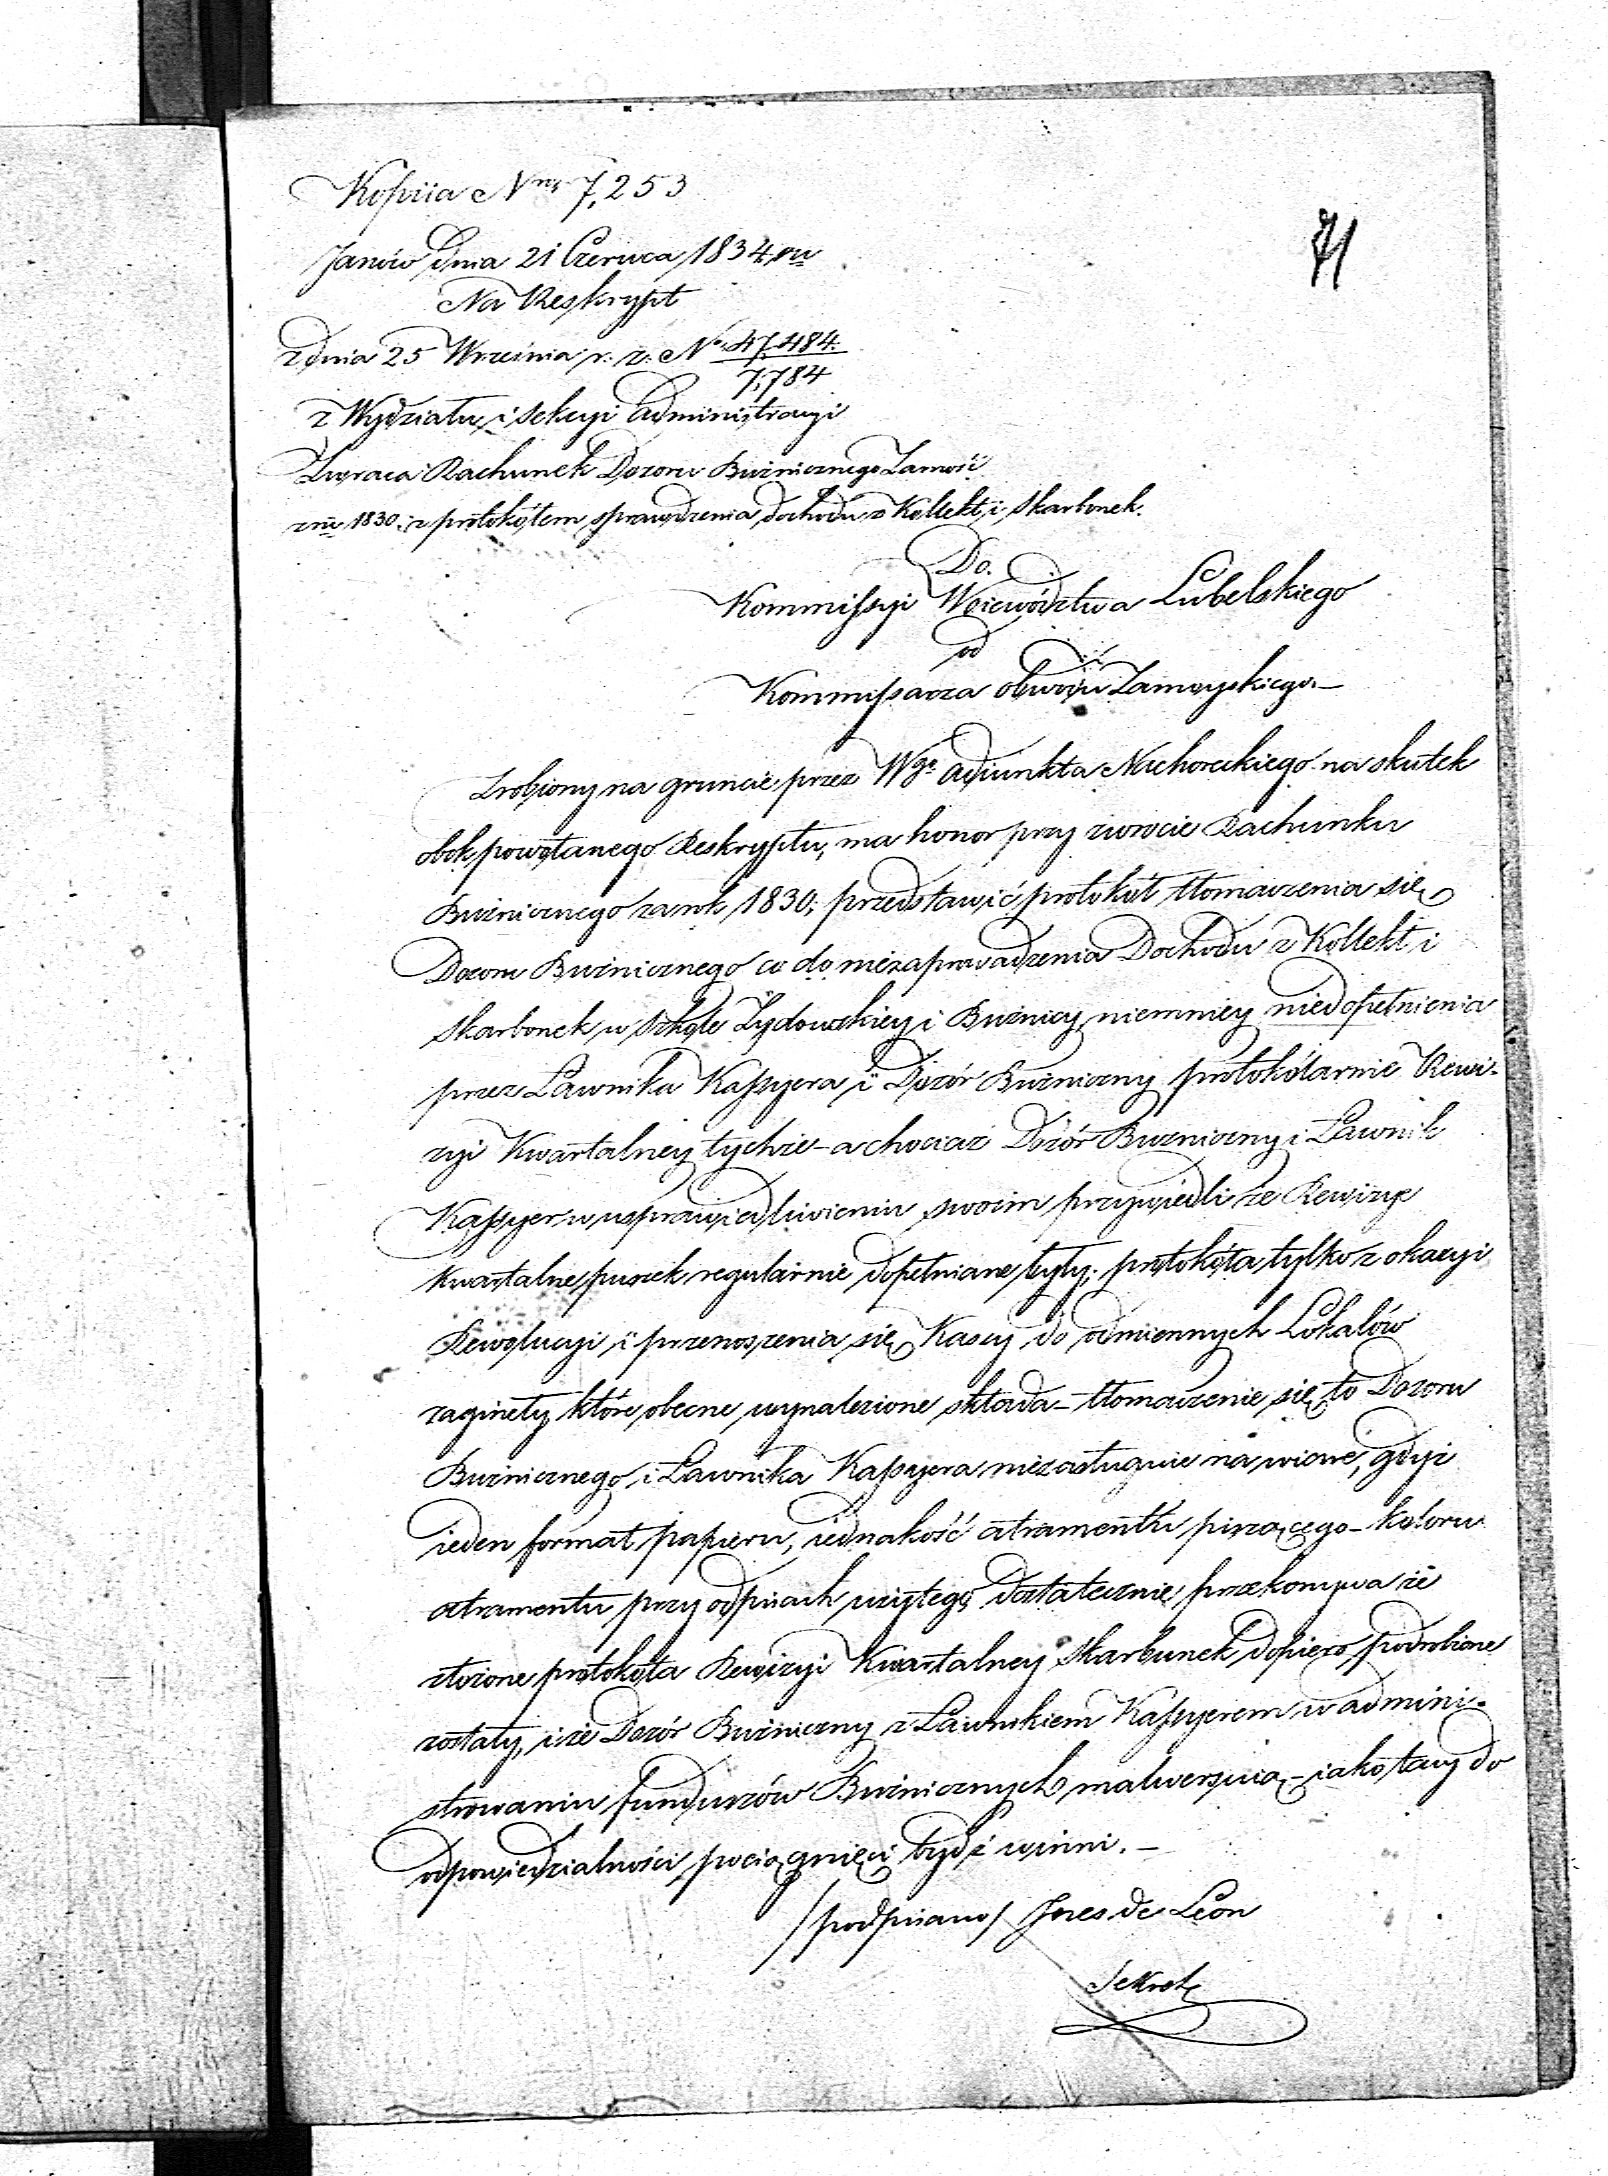 Kopiia Nro 7,253
71
Janów dnia 21 Czerwca 1834 ru
Na Reskrypt
z dnia 25 Września r: z: No 47.484.
7,784
z Wydziału i Sekcyi Administracyi
Zwraca Rachunek Dozoru Bużnicznego Zamość
z ru 1830: z protokółem sprawdzenia dochodu z Kollekt i Skarbonek.
Do.
Kommissyi Woiewództwa Lubelskiego
od
Kommissarza obwodu Zamoyskiego.—
Zrobiony na gruncie przez Wgo Adiunkta Nachoreckiego na skutek
obok powołanego Reskryptu, ma honor przy zwrocie Rachunku
Bużnicznego za rok 1830; przedstawić protokół tłomaczenia się
Dozoru Bużnicznego co do niezaprowadzenia Dochodu z Kollekt i
skarbonek w szkole Żydowskiey i Bużnicy, niemniey niedopełnienia
przez Ławnika Kassyera i Dozór Bużniczny protokólarnie Rewi-
zyi Kwartalney tychże – a chociaż Dozór Bużniczny i Ławnik
Kassyer w usprawiedliwieniu swoim przywiedli że Rewizye
kwartalne puszek regularnie dopełniane były, protokóła tylko z okazyi
Rewolucyi i przenoszenia się Kassy do odmiennych Lokalów
zaginęły, które obecne wynalezione składa – tłomaczenie się to Dozoru
Bużnicznego i Ławnika Kassyera niezasługuie na wiarę, gdyż
ieden format papieru, iednakość atramentu piszącego – koloru
atramentu przy odpisach użytego dostatecznie przekonywa że
złożone protokóła Rewizyi Kwartalney Skarbunek dopiero podrobione
zostały, i że Dozór Bużniczny z Ławnikiem Kassyerem w admini-
strowaniu funduszów Bużnicznych malwersuią – iako tacy do
odpowiedzialności pociągnięci bydź winni.—
/podpisano/ Jnes de Leon
Sekret